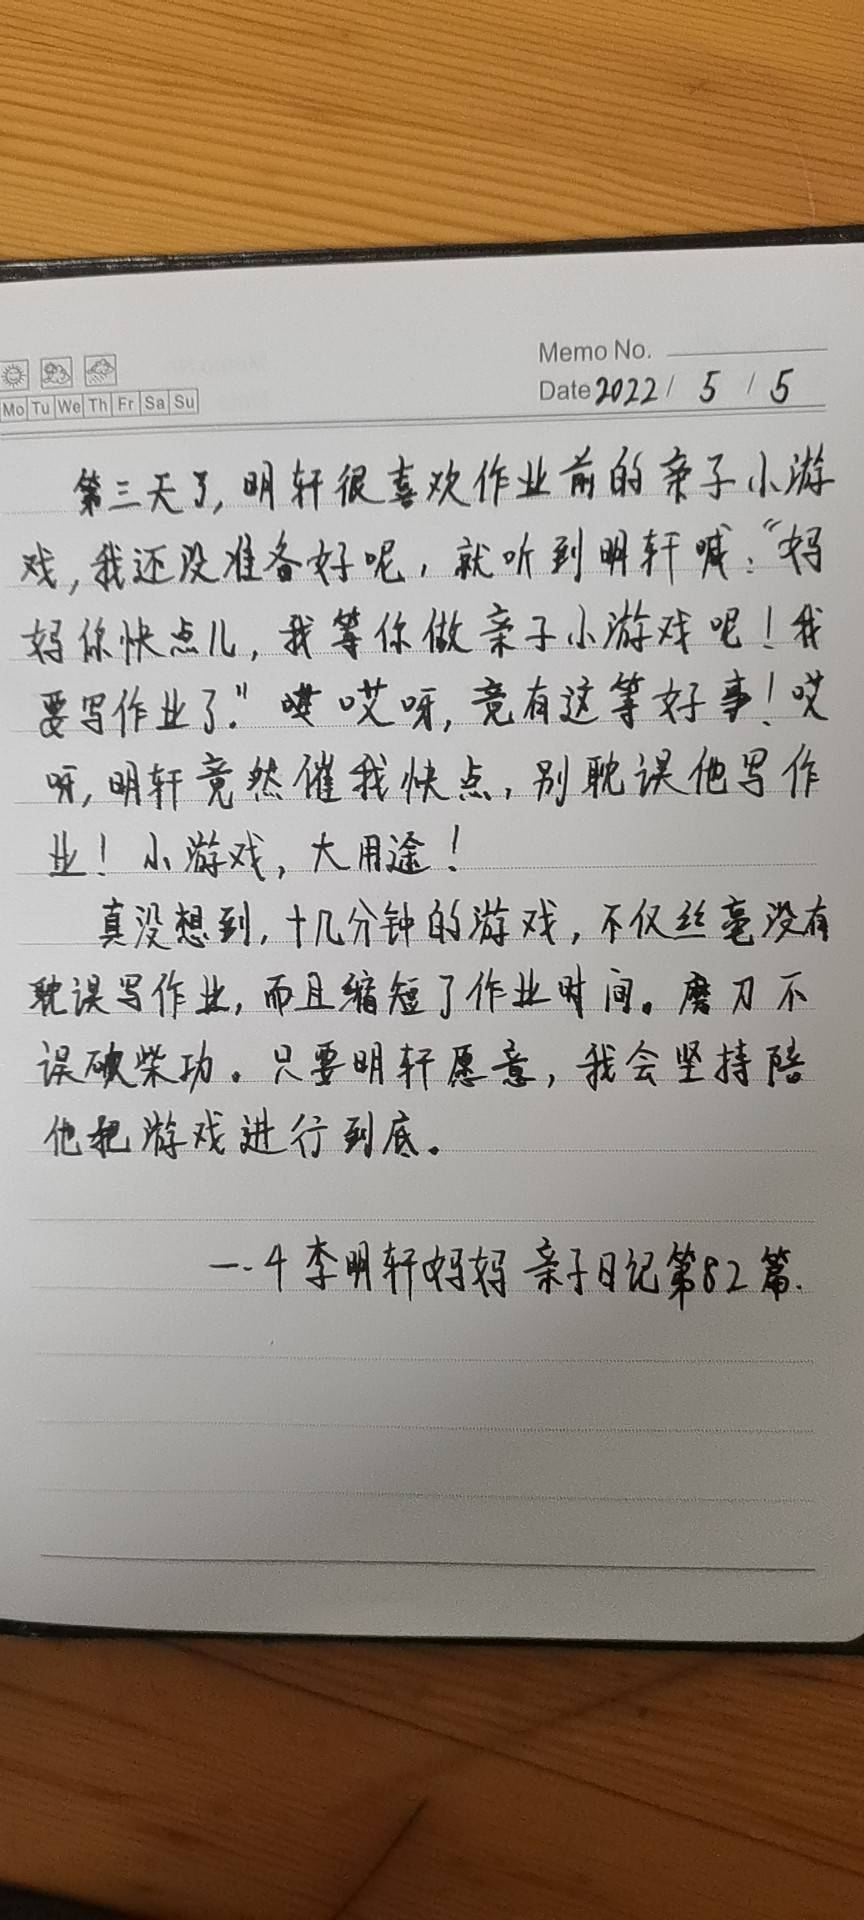 Memo No.
Mo Tu We Th Fr Sa Su
Date 2022 / 5 / 5
第三天了,明轩很喜欢作业前的亲子小游
戏,我还没准备好呢,就听到明轩喊:“妈
妈你快点儿,我等你做亲子小游戏呢!我
要写作业了.” 哎呀,竟有这等好事!哎
呀,明轩竟然催我快点,别耽误他写作
业!小游戏,大用途!
真没想到,十几分钟的游戏,不仅丝毫没有
耽误写作业,而且缩短了作业时间。磨刀不
误砍柴功。只要明轩愿意,我会坚持陪
他把游戏进行到底。
一.4 李明轩妈妈 亲子日记第82篇.